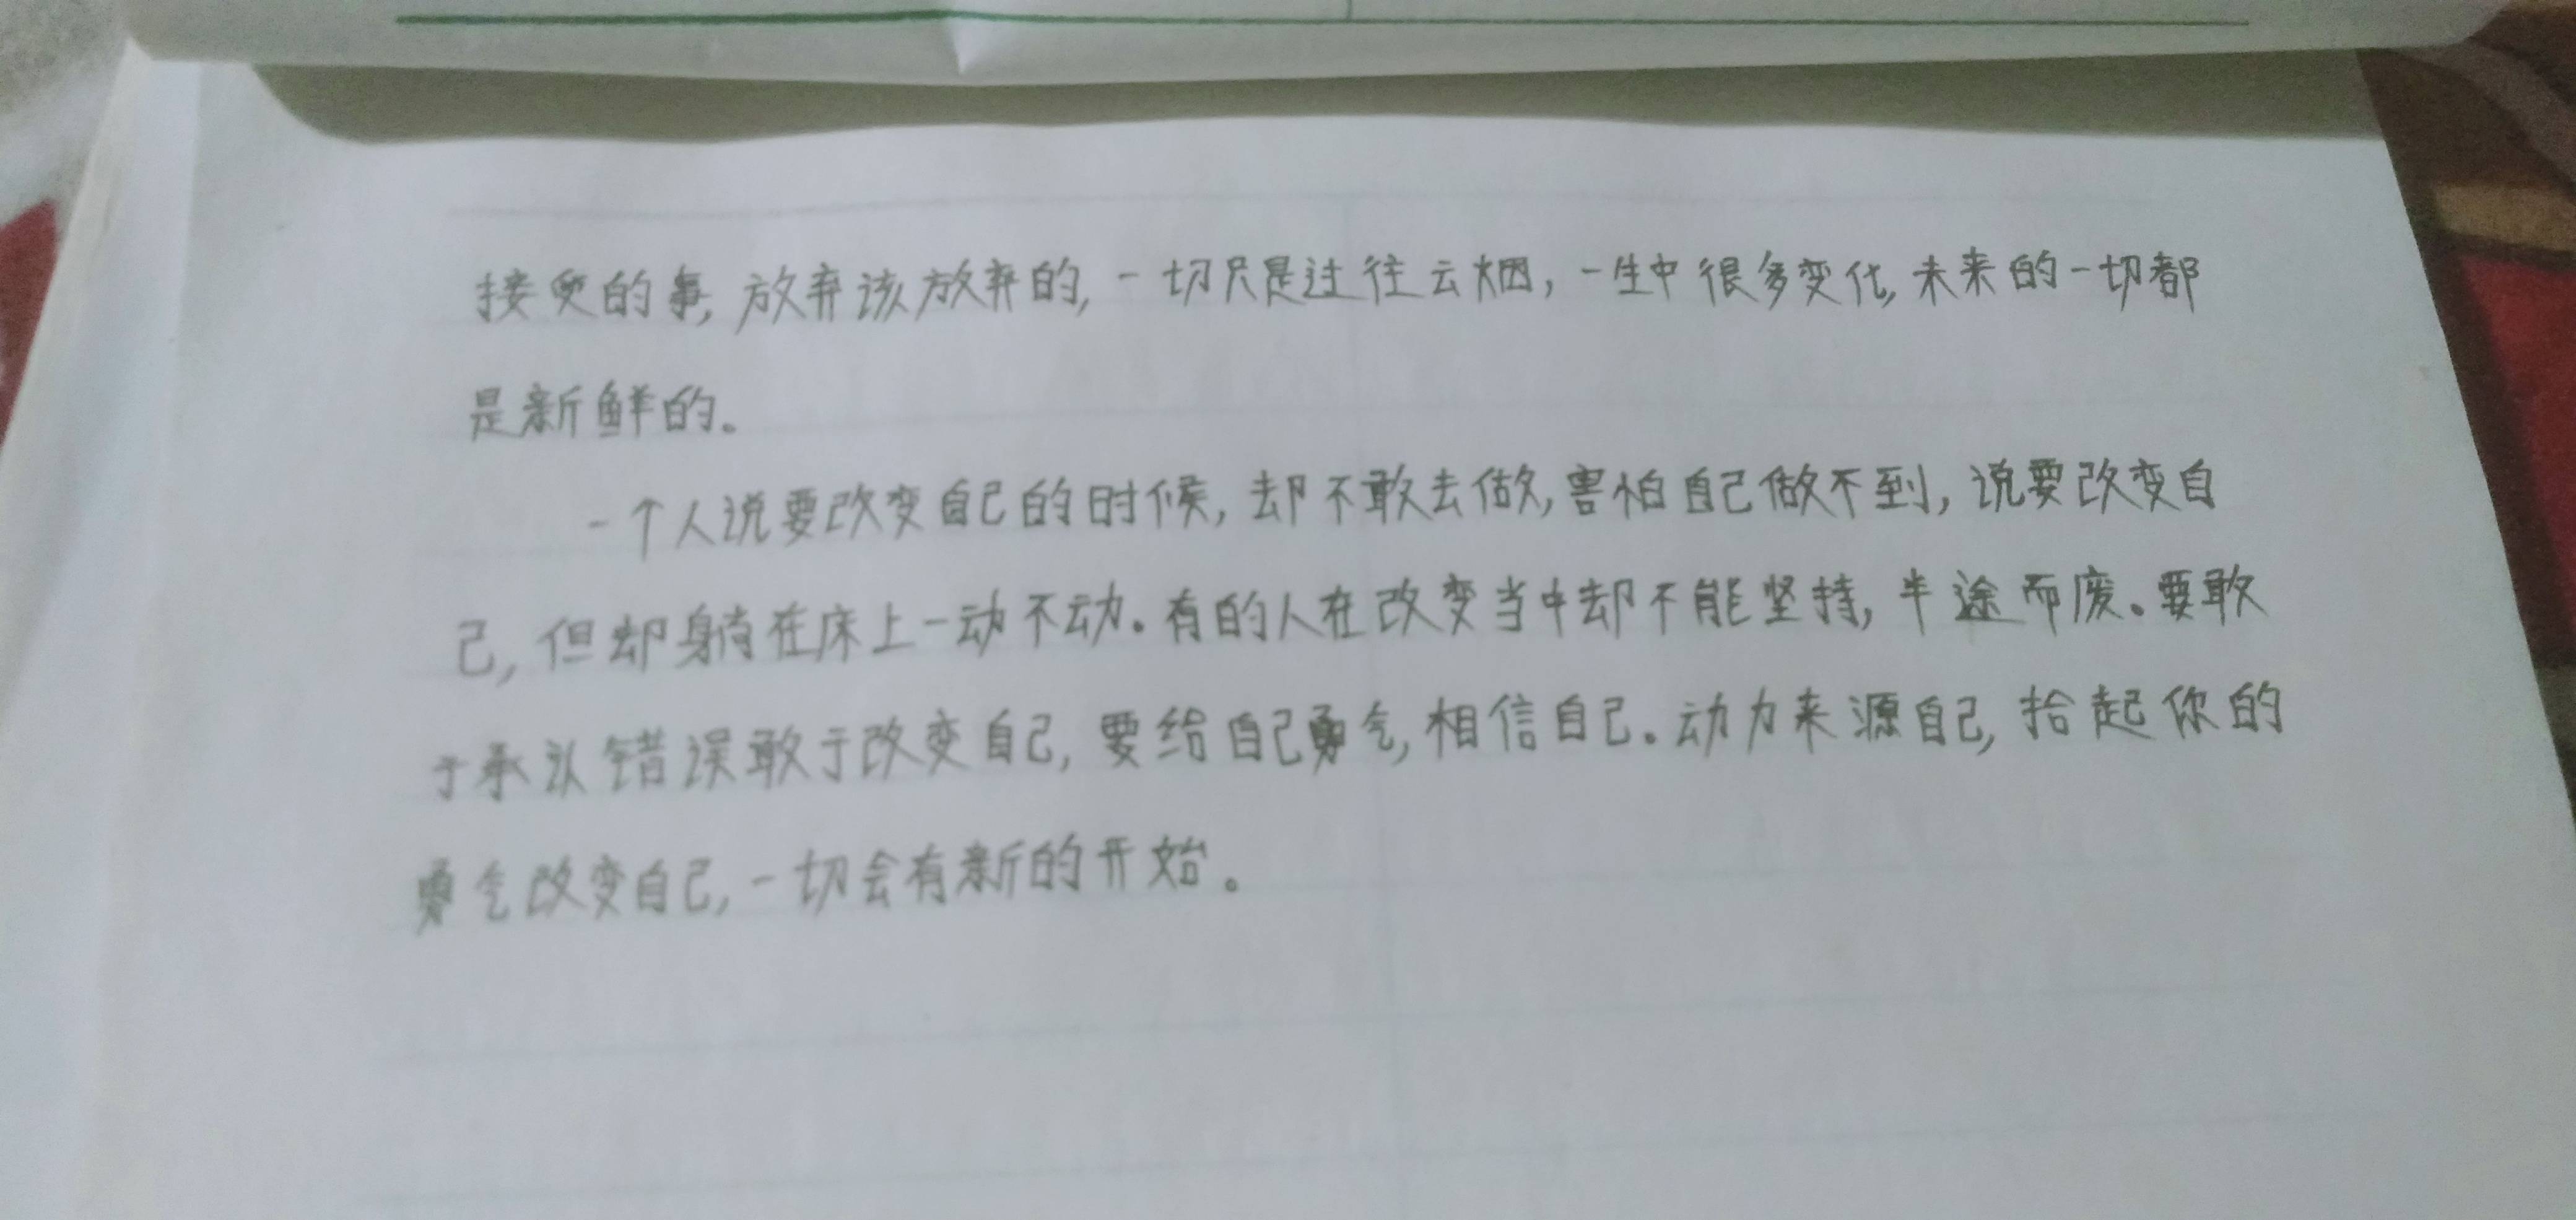 接受的事,放弃该放弃的,一切只是过往云烟,一生中很多变化,未来的一切都
是新鲜的。
一个人说要改变自己的时候,却不敢去做,害怕自己做不到,说要改变自
己,但却躺在床上一动不动。有的人在改变当中却不能坚持,半途而废。要敢
于承认错误敢于改变自己,要给自己勇气,相信自己。动力来源自己,拾起你的
勇气改变自己,一切会有新的开始。